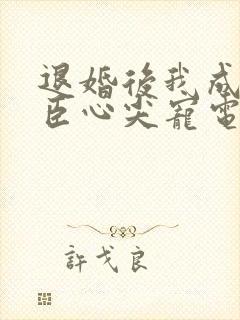 退婚後我成
臣心尖寵電
許戈良